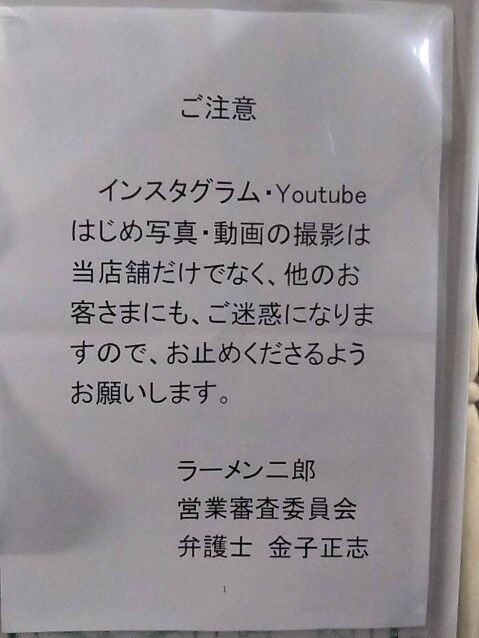 ご注意
インスタグラム・Youtube
はじめ写真・動画の撮影は
当店舗だけでなく、他のお
客さまにも、ご迷惑になりま
すので、お止めくださるよう
お願いします。
ラーメン二郎
営業審査委員会
弁護士 金子正志
1